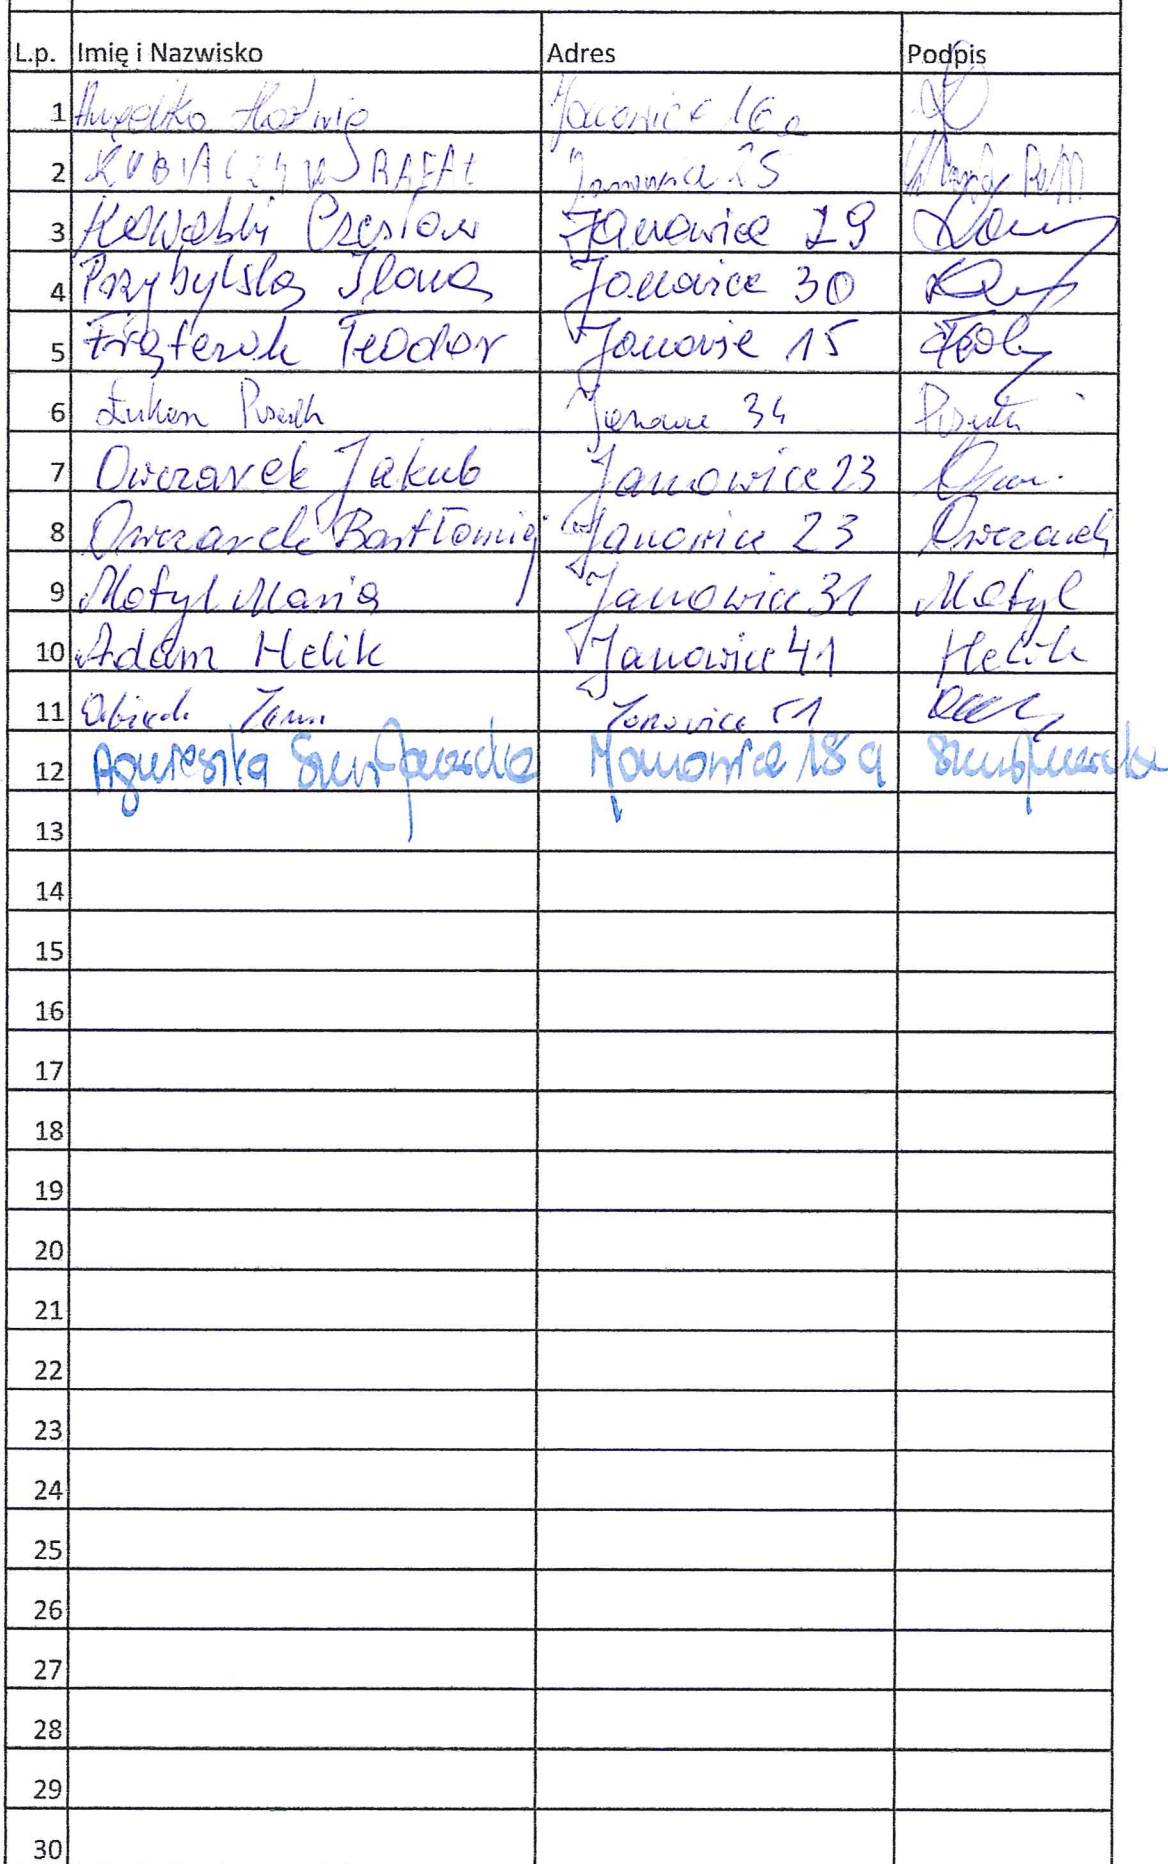 L.p. Imię i Nazwisko Adres Podpis
1 Janowice 16a
2 KUBIACZYK RAFAŁ Janowice 25
3 Kowalski Czesław Janowice 29
4 Przybylska Ilona Janowice 30
5 Teodor Janowie 15
6 Łukasz 34
7 Owczarek Jakub Janowice 23
8 Owczarek Bartłomiej Janowice 23 Owczarek
9 Motyl Maria Janowice 31 Motyl
10 Adam Helik Janowice 41 Helik
11 Janowice 51
12 Agnieszka Janowice 18a
13
14
15
16
17
18
19
20
21
22
23
24
25
26
27
28
29
30